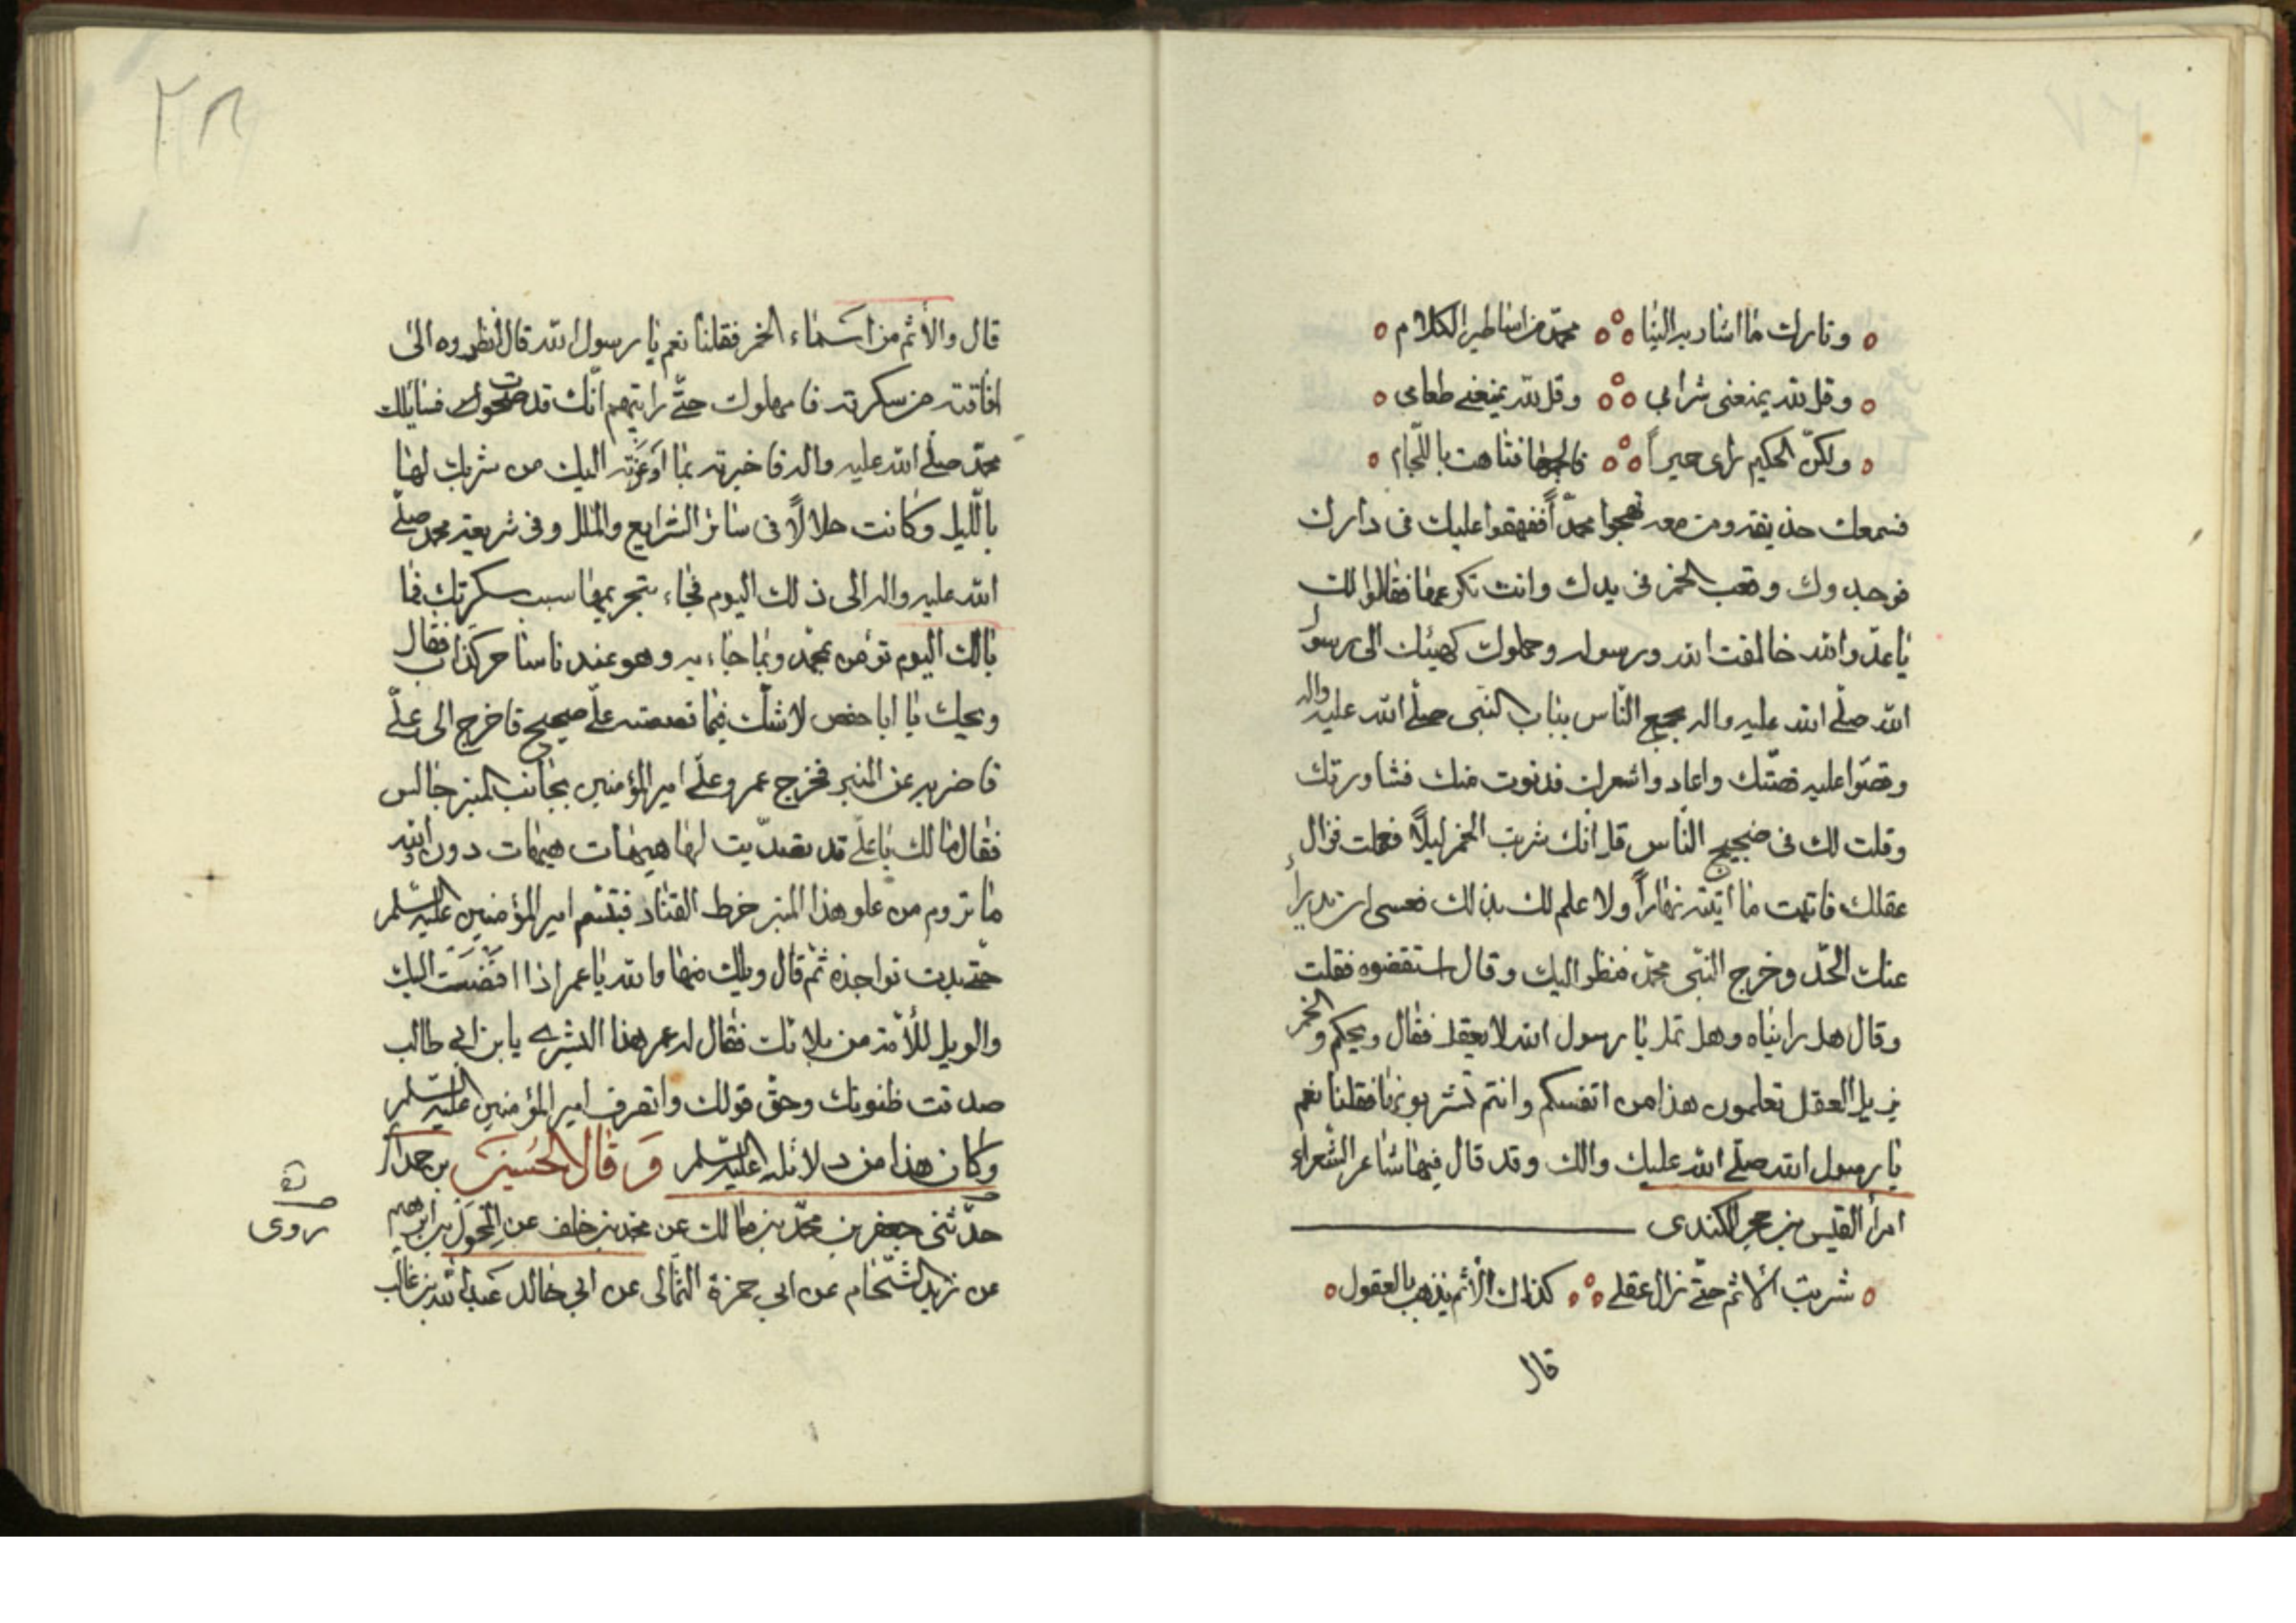 وتارك ما اشار به الينا محمد من اساطير الكلام
وقل لله يمنعنى شرابي وقل لله يمنعنى طعامى
ولكن الحكيم راى حميراً فالجمها فتاهت باللجام
فسمعك حذيفة ومن معه تهجوا محمداً فهجموا عليك فى دارك
فوجدوك وقعب الخمر فى يدك وانت تكرعها فقالوا لك
يا عدو الله خالفت الله ورسوله وحملوك كهيئتك الى رسول
الله صلى الله عليه واله بجمع الناس بباب النبى صلى الله عليه واله
وقصوا عليه قصتك واعادوا شعرك فدنوت منك فشاورتك
وقلت لك فى ضجيج الناس قل انك شربت الخمر ليلاً فثملت فزال
عقلك فاتيت ما اتيته نهاراً ولا علم لك بذلك فعسى ان تدرأ
عنك الحد وخرج النبى محمد فنظر اليك وقال استقضوه فقلت
وقال هل رايناه وهل ثمل يا رسول الله لا يعقل فقال ويحكم والخمر
يزيل العقل تعلمون هذا من انفسكم وانتم تشربونها فقلنا نعم
يا رسول الله صلى الله عليك والك وقد قال فيها شاعر الشعراء
امرأ القيس بن حجر الكندى
شربت الاثم حتى زال عقلى كذاك الاثم يذهب بالعقول
قال
٢٨
قال والأثم من اسماء الخمر فقلنا نعم يا رسول الله قال انظروه الى
افاقته من سكرته فامهلوك حتى رايتهم انك قد صحوت فسائلك
محمد صلى الله عليه واله فاخبرته بما اوعزته اليك من شربك لها
بالليل وكانت حلالاً فى سائر الشرايع والملل وفى شريعة محمد صلى
الله عليه واله الى ذلك اليوم فجاء تحريمها سبب سكرتك فما
بالك اليوم تؤمن بمحمد وبما جاء به وهو عندنا ساحر كذاب فقال
ويحك يا ابا حفص لا شك فيما قصصته على صحيح فاخرج الى على
فاضربه عن المنبر فخرج عمر وعلى امير المؤمنين بجانب المنبر جالس
فقال ما لك يا على قد تصديت لها هيهات هيهات دون الله
ما تروم من علو هذا المنبر خرط القتاد فتبسم امير المؤمنين عليه السلم
حتى بدت نواجذه ثم قال ويلك منها والله يا عمر اذا افضت اليك
والويل للأمة من بلائك فقال له عمر هذا البشرى يا بن ابى طالب
صدقت ظنونك وحق قولك وانصرف امير المؤمنين عليه السلم
وكان هذا من دلائله عليه السلم وقال الحسين بن حمدان
حدثنى جعفر بن محمد بن مالك عن محمد بن خلف عن المخول بن ابرهيم
روى
عن زيد الشحام عن ابى حمزة الثمالى عن ابى خالد عبد الله بن غالب